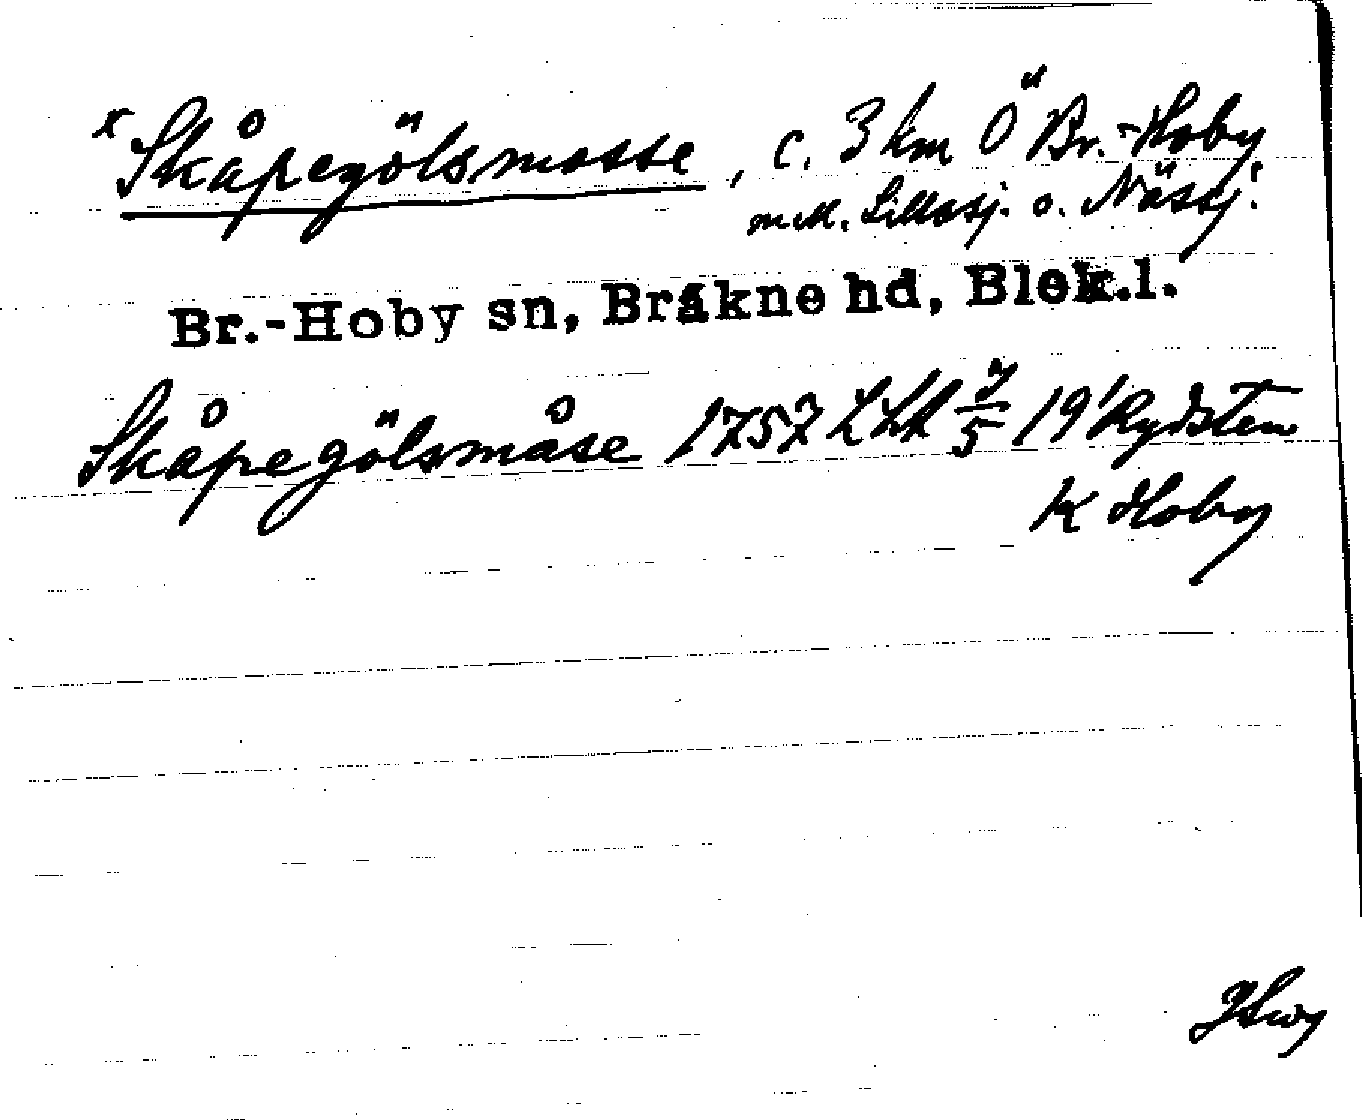 x Skåpegölsmosse, c. 3 km Ö Br.-Hoby
mell. Lillasj. o. Nässj.
Br.-Hoby sn, Bräkne hd, Blek.l.
Skåpegölsmåse 1757 LSA 7/5 19' Rydsten
K Hoby